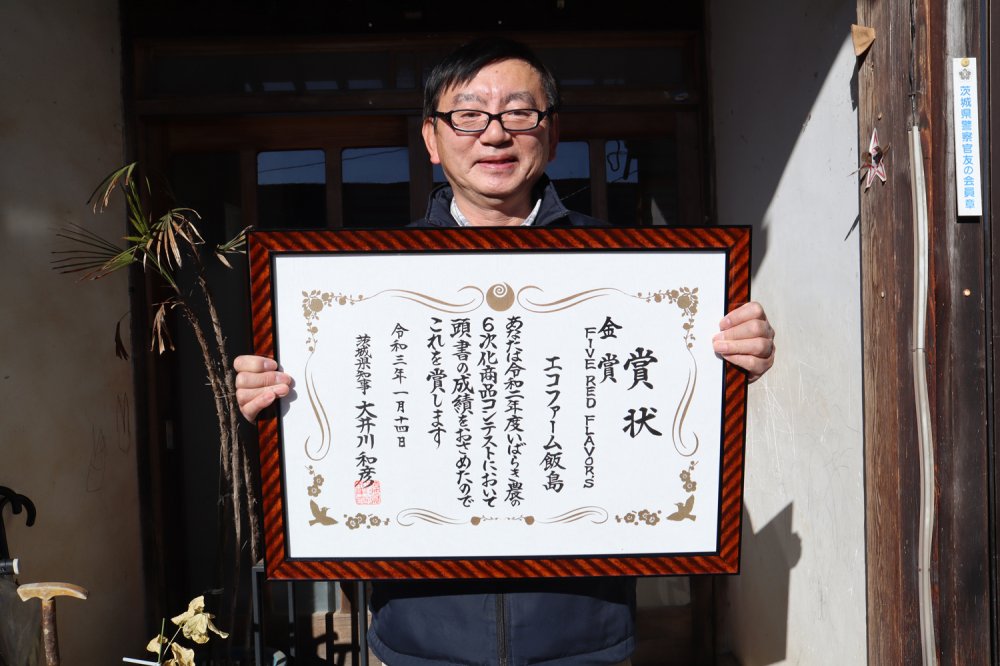 賞状
金賞
FIVE RED FLAVORS
エコファーム飯島
あなたは令和二年度いばらき農の
6次化商品コンテストにおいて
頭書の成績をおさめたので
これを賞します
令和三年一月十四日
茨城県知事 大井川和彦
茨城県警察官友の会員章